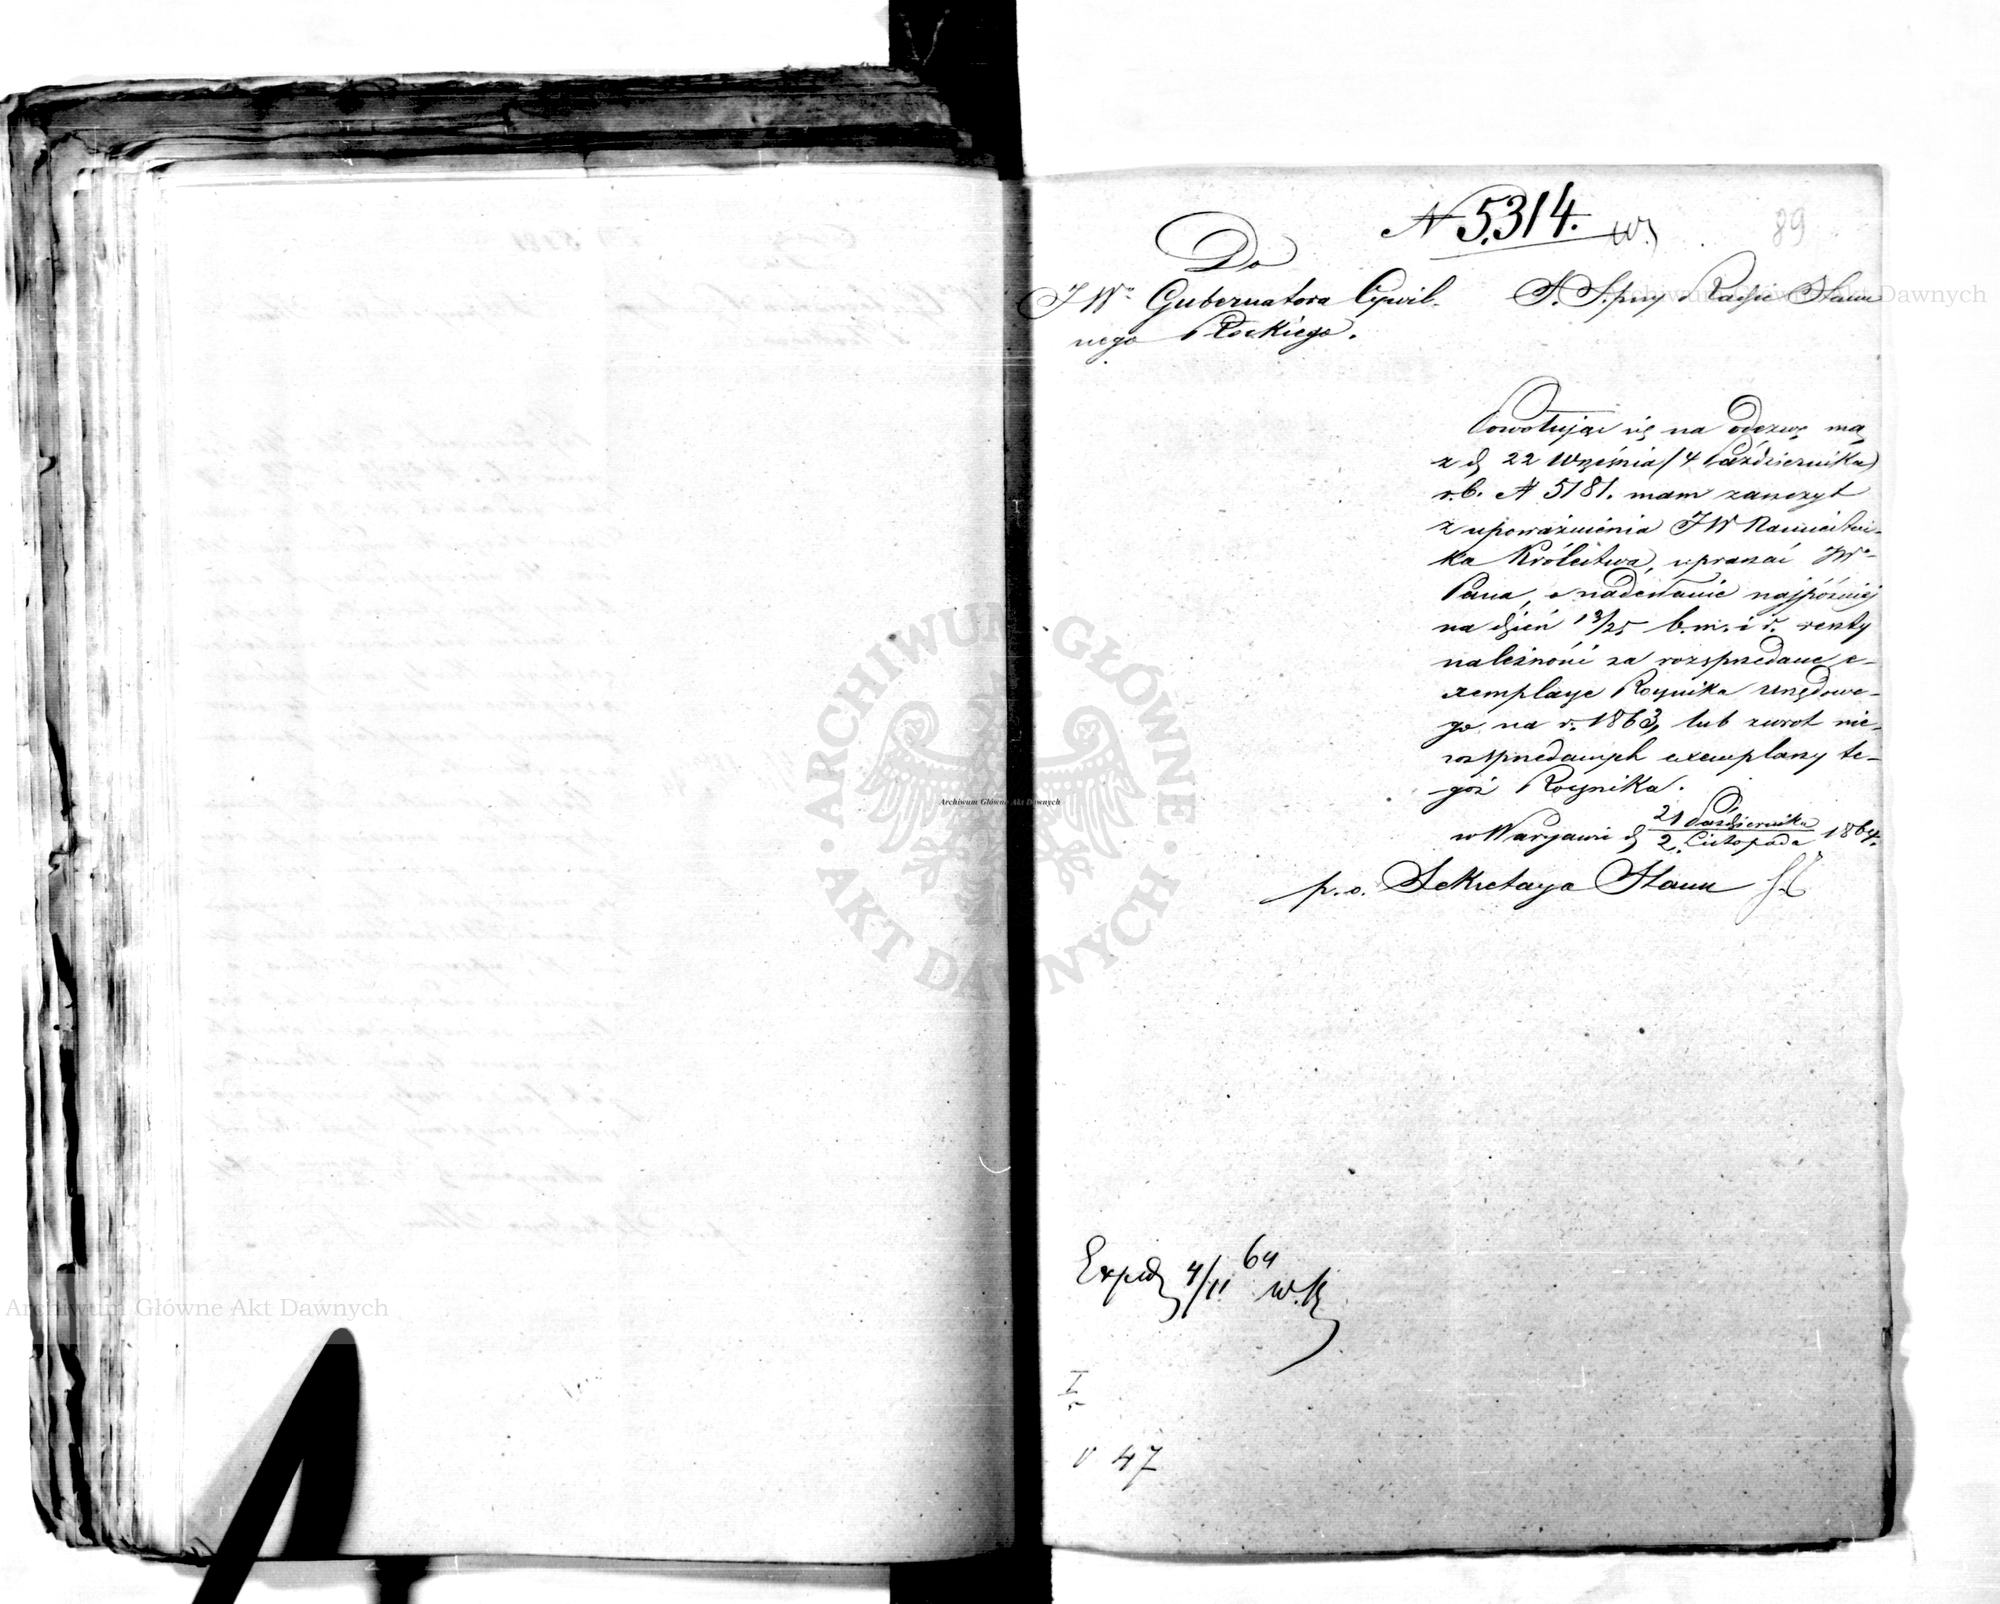 N 5314. W.
89
Do
JWo Gubernatora Cywil-
nego Płockiego.
S. S. przy Radzie Stanu
Powołując się na odezwę mą
z d. 22 Września/4 Października)
r.b. N 5181. mam zaszczyt
z upoważnienia JW Namiestni-
ka Królestwa, upraszać JWo
Pana, o nadesłanie najpóźniej
na dzień 13/25 b.m. i r. reszty
należności za rozsprzedane e-
xemplarze Rocznika Urzędowe-
go na r. 1863, lub zwrot nie-
rozsprzedanych exemplarzy te-
goż Rocznika.
w Warszawie d. 21 Października
2. Listopada 1864.
p.o. Sekretarza Stanu
Exped 4/11 64 w.K
I
v 47
Archiwum Główne Akt Dawnych
Archiwum Główne Akt Dawnych
Archiwum Główne Akt Dawnych
ARCHIWUM GŁÓWNE
AKT DAWNYCH